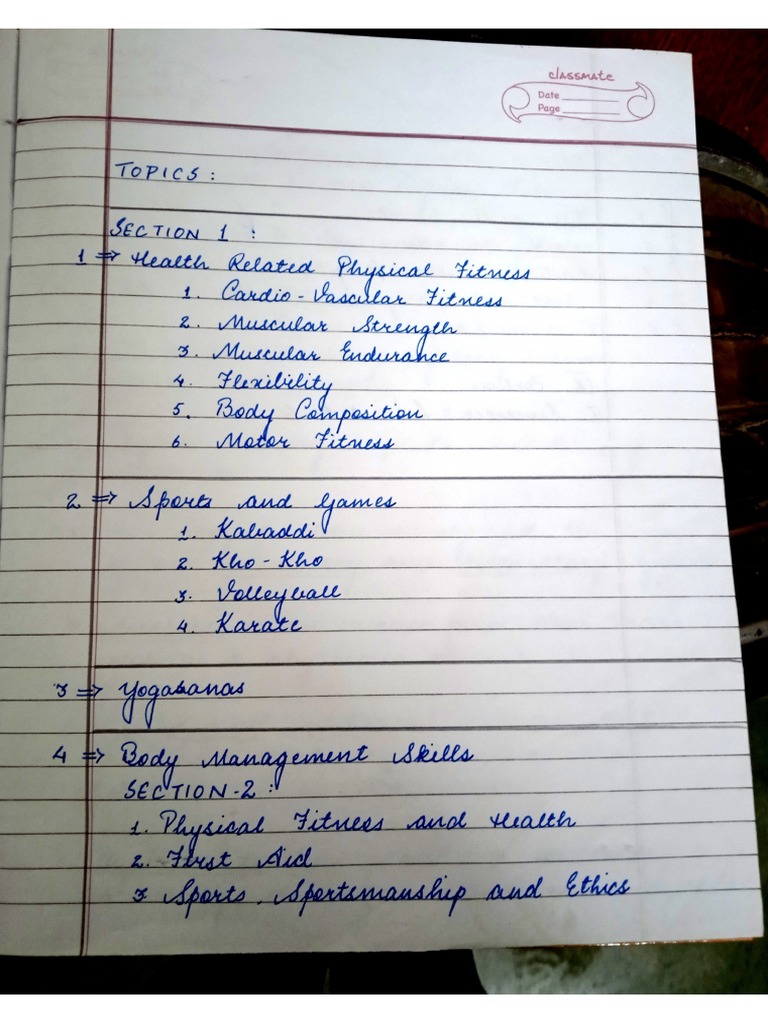 classmate
Date
Page
TOPICS:
SECTION 1 :
1 ⇒ Health Related Physical Fitness
1. Cardio-Vascular Fitness
2. Muscular Strength
3. Muscular Endurance
4. Flexibility
5. Body Composition
6. Motor Fitness
2 ⇒ Sports and Games
1. Kabaddi
2. Kho-Kho
3. Volleyball
4. Karate
3 ⇒ Yogasanas
4 ⇒ Body Management Skills
SECTION-2 :
1. Physical Fitness and Health
2. First Aid
3 Sports, Sportsmanship and Ethics